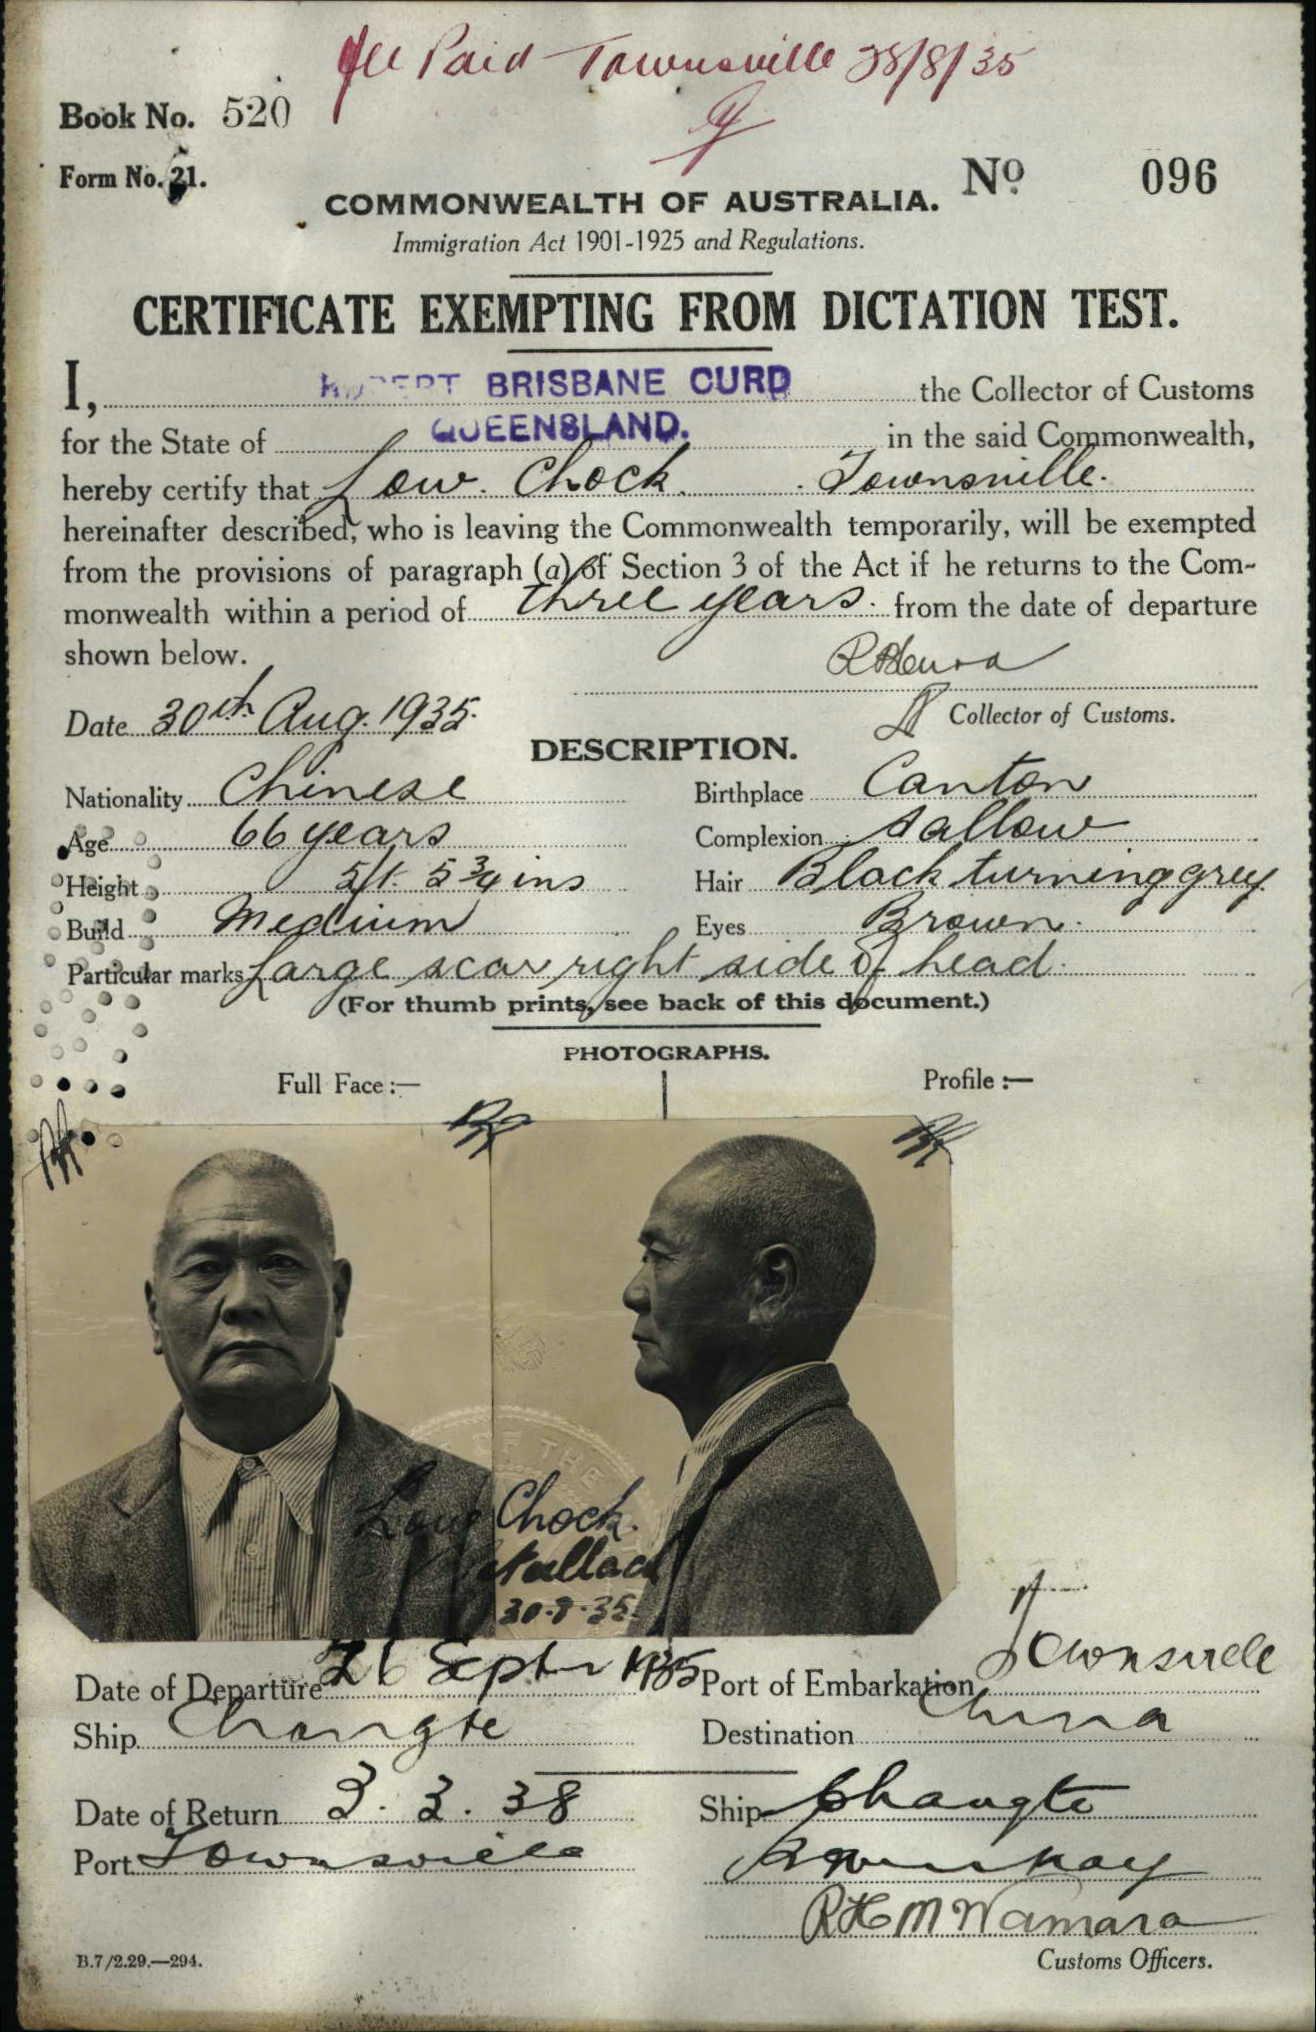 Fee Paid Townsville 28/8/35
Book No. 520
Form No. 21.
No 096
COMMONWEALTH OF AUSTRALIA.
Immigration Act 1901-1925 and Regulations.
CERTIFICATE EXEMPTING FROM DICTATION TEST.
I, ROBERT BRISBANE CURD the Collector of Customs
for the State of QUEENSLAND. in the said Commonwealth,
hereby certify that Low Chock. Townsville.
hereinafter described, who is leaving the Commonwealth temporarily, will be exempted
from the provisions of paragraph (a) of Section 3 of the Act if he returns to the Com-
monwealth within a period of three years. from the date of departure
shown below.
Date 30th Aug. 1935. Collector of Customs.
DESCRIPTION.
Nationality Chinese Birthplace Canton
Age 66 years Complexion Sallow
Height 5ft. 5 3/4 ins Hair Black turning grey
Build Medium Eyes Brown.
Particular marks Large scar right side of head.
(For thumb prints, see back of this document.)
PHOTOGRAPHS.
Full Face :— Profile :—
OF THE
Low Chock.
30.8.35.
Date of Departure 26 Septr 1935 Port of Embarkation Townsville
Ship Changte Destination China
Date of Return 3.3.38 Ship Changte
Port Townsville
Customs Officers.
B.7/2.29.—294.